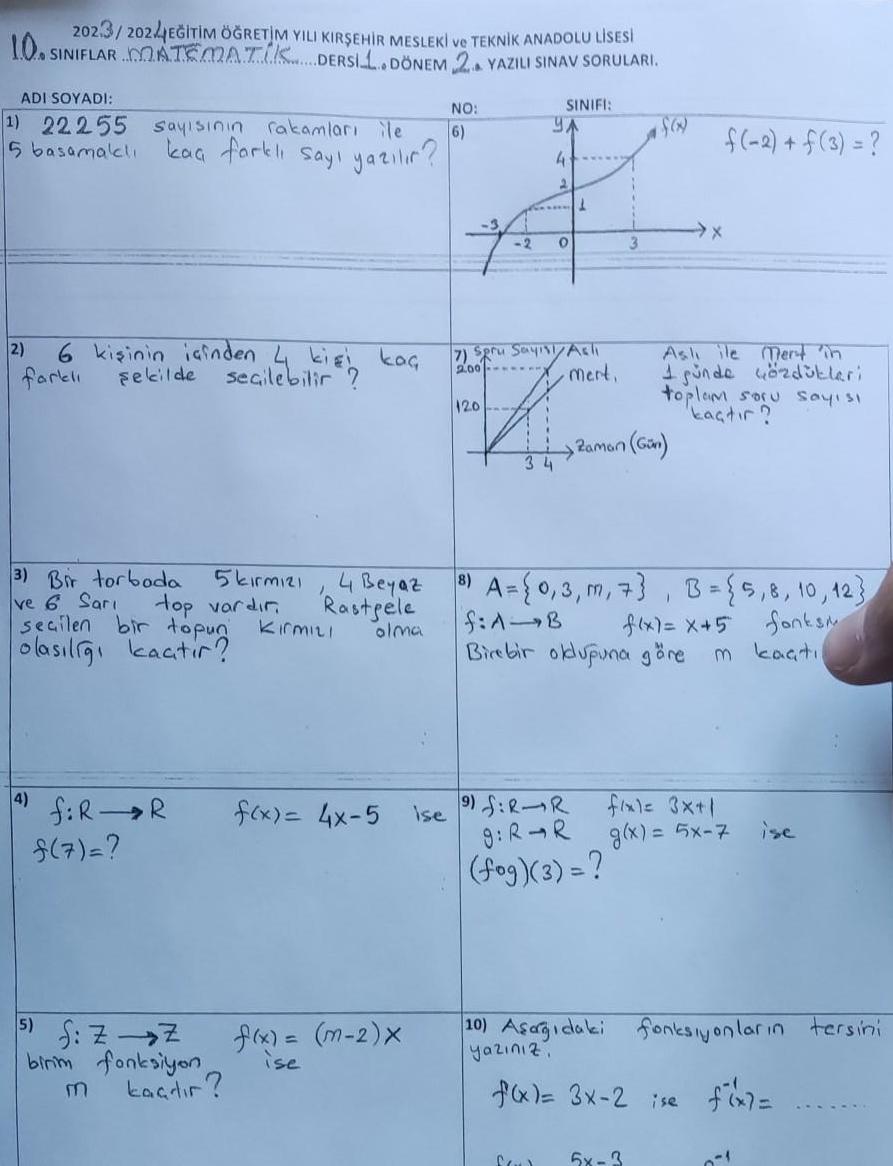 2023/2024 EĞİTİM ÖĞRETİM YILI KIRŞEHİR MESLEKİ ve TEKNİK ANADOLU LİSESİ
10. SINIFLAR ..MATEMATİK.....DERSİ 1. DÖNEM 2. YAZILI SINAV SORULARI.
ADI SOYADI:
NO:
SINIFI:
1) 22255 sayısının rakamları ile
5 basamaklı kaç farklı sayı yazılır?
2) 6 kişinin içinden 4 kişi kaç
farklı şekilde seçilebilir?
3) Bir torbada 5 kırmızı, 4 Beyaz
ve 6 Sarı top vardır. Rastgele
seçilen bir topun kırmızı olma
olasılığı kaçtır?
4) f:R→R f(x)= 4x-5 ise
f(7)=?
5) f: Z→Z f(x)= (m-2)x
birim fonksiyon ise
m kaçtır?
6)
y
f(x)
f(-2) + f(3) = ?
4
2
1
-3
x
-2 0 3
7) Soru Sayısı Aslı
200
Mert.
120
Zaman (Gün)
3 4
Aslı ile Mert'in
1 günde çözdükleri
toplam soru sayısı
kaçtır?
8) A={0,3,m,7}, B={5,8,10,12}
f:A→B f(x)= x+5
Birebir olduğuna göre m
9) f:R→R f(x)= 3x+1
g:R→R g(x)= 5x-7 ise
(fog)(3)=?
10) Aşağıdaki fonksiyonların tersini
yazınız.
f(x)= 3x-2 ise f⁻¹(x)= .......
5x-3